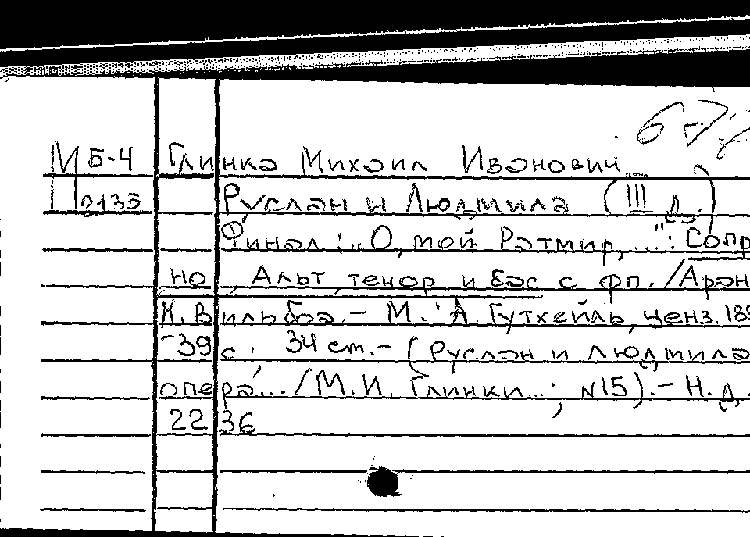 М Б-4 Глинка Михаил Иванович
П 2135 Руслан и Людмила (III д.)
Финал: „О, мой Ратмир,...": Сопр
но, Альт, тенор и бас с фп. /Аран
К. Вильбоа. - М.: А. Гутхейль, ценз. 189
-39 с. 34 см. - (Руслан и Людмила
опера... /М.И. Глинки...; №15). - Н.д.
2236